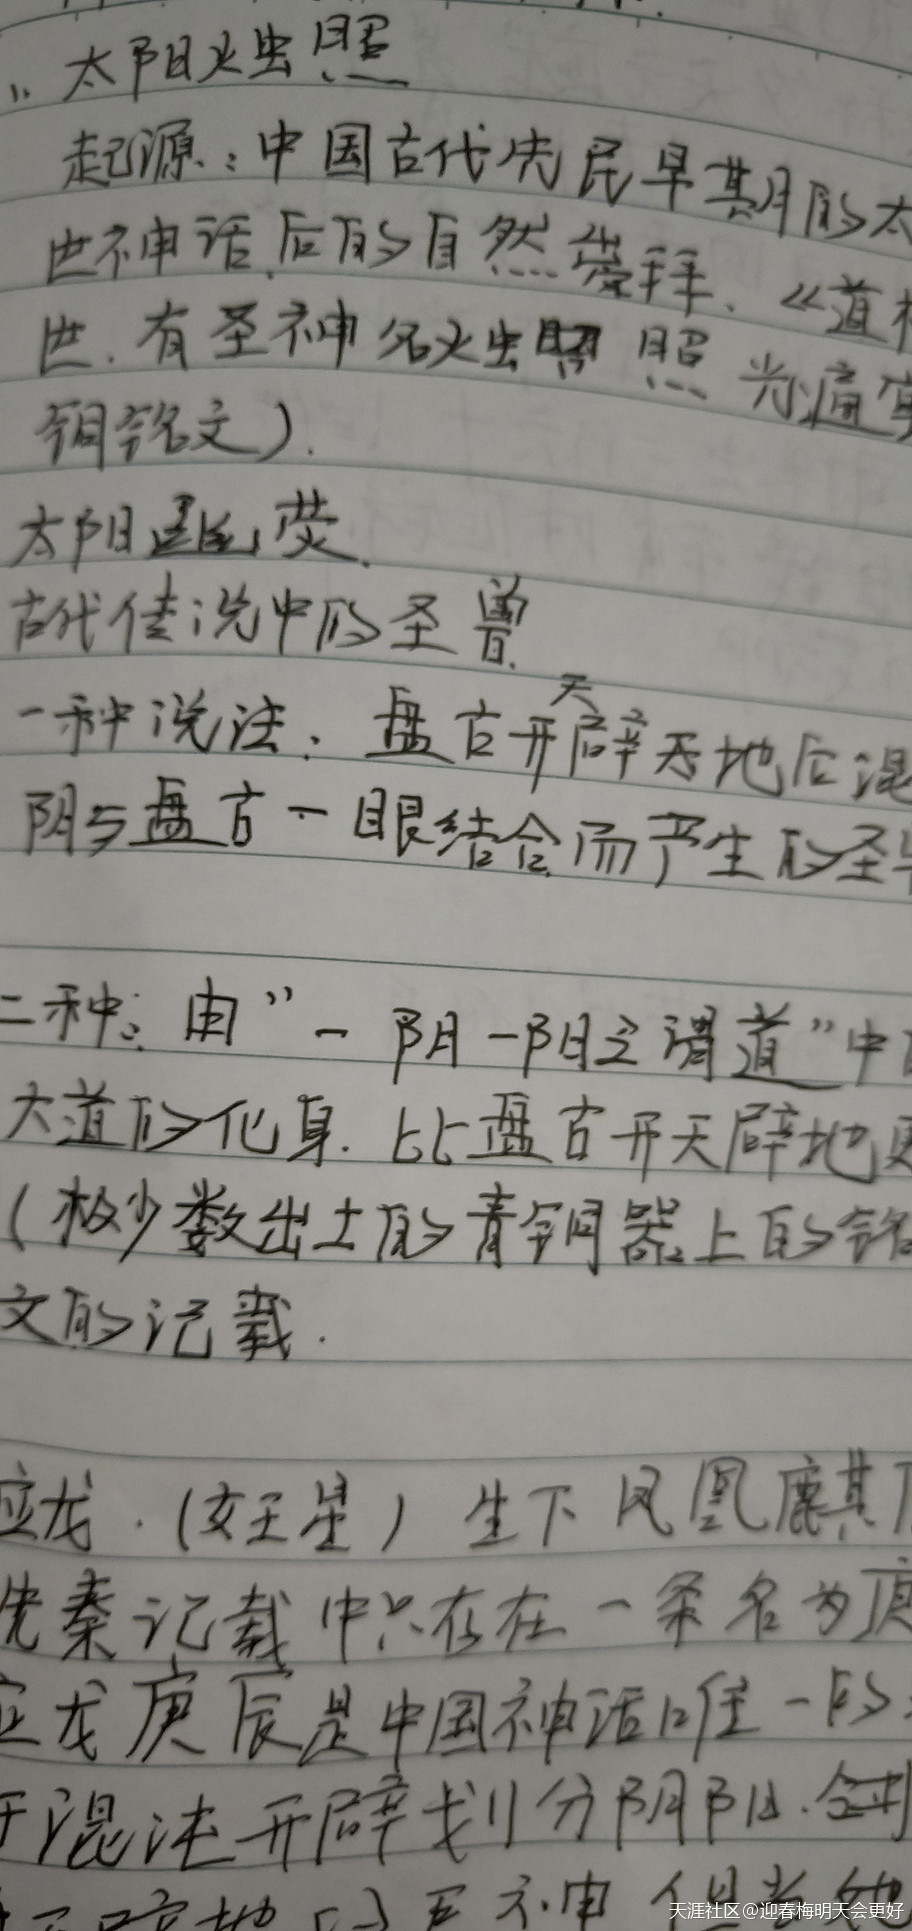 太阳烛照
起源：中国古代先民早其月的太
世神话后的自然崇拜、《道
世.有圣神名烛照 照 光
铜铭文).
太阳幽荧.
古代传说中的圣兽
一种说法：盘古开天辟天地后混
阴与盘古一眼结合而产生的圣
二种：由”一阴一阳之谓道”中
大道的化身.比盘古开天辟地
(极少数出土的青铜器上的铭
文的记载.
应龙.(女王星) 生下凤凰麒
先秦记载中只存在一条名为庚
应龙庚辰是中国神话唯一的
混沌开辟划分阴阳.
天涯社区@迎春梅明天会更好